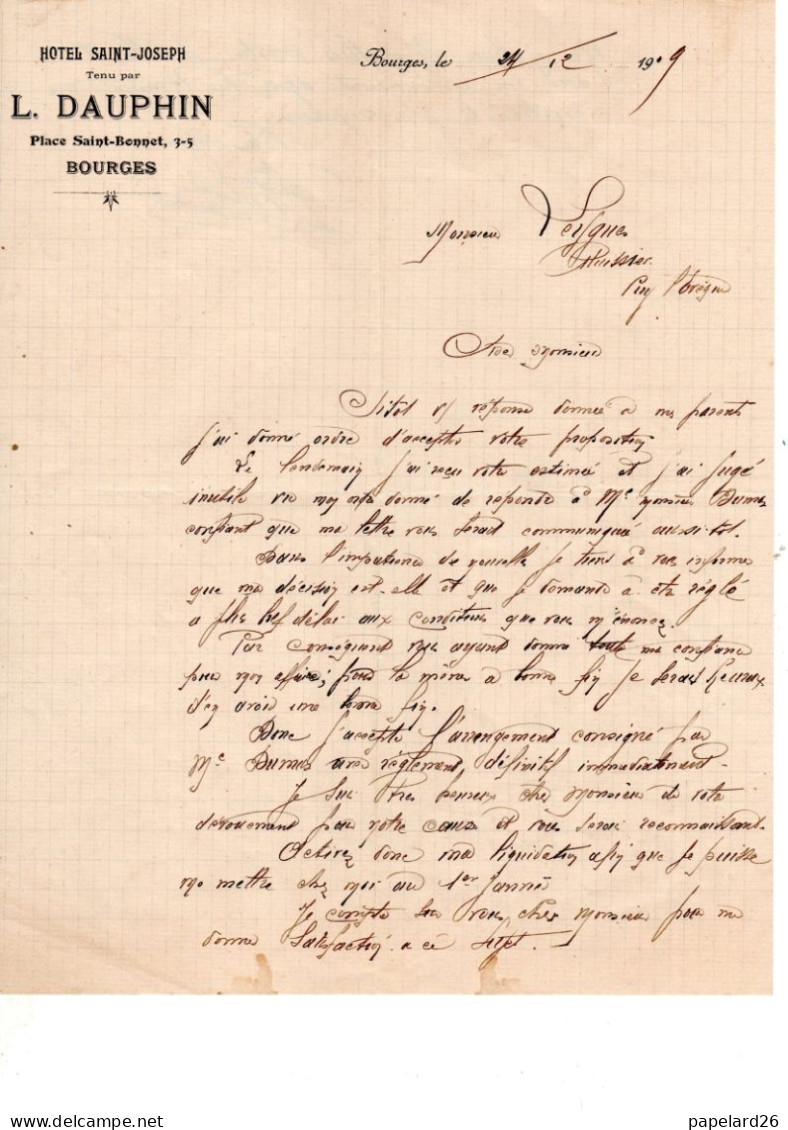 HOTEL SAINT-JOSEPH
Tenu par
L. DAUPHIN
Place Saint-Bonnet, 3-5
BOURGES
Bourges, le 24/12 1909
Monsieur
Huissier
Puy l'Evêque
Cher Monsieur
Sitôt réponse donnée à mes parents
j'ai donné ordre d'accepter votre proposition
Le lendemain j'ai reçu votre estimée et j'ai jugé
inutile vu mon ordre donné de reponde à Me monsieur Dumas
confiant que ma lettre vous serait communiqué aussi-tot.
Dans l'impatience de nouvelle je tiens à vous informer
que ma décision est-elle et que je demande à etre réglé
a plus bref délai aux conditions que vous m'énoncez.
Par conséquent vous ayant donné toute ma confiance
pour mon affaire; pour la mener à bonne fin je serais heureux
d'en avoir une bonne fin.
Donc j'accepte l'arrangement consigné par
Me Dumas avec règlement, définitif immédiatement.
Je suis très cher Monsieur de votre
dévouement pour notre cause et vous serai reconnaissant.
Activez donc ma liquidation afin que je puisse
me mettre chez moi au 1er Janvier
Je compte sur vous, cher Monsieur pour me
donner satisfaction a ce sujet.
papelard26